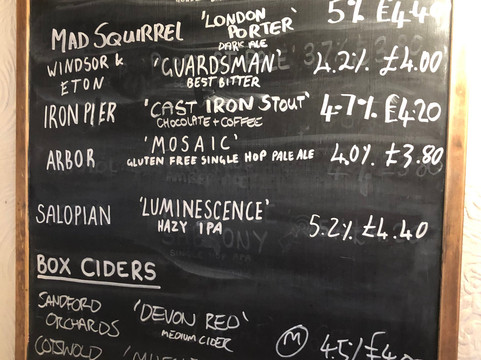 MAD SQUIRREL 'LONDON PORTER' 5% £4.40
DARK ALE
WINDSOR & ETON 'GUARDSMAN' 4.2% £4.00
BEST BITTER
IRON PIER 'CAST IRON STOUT' 4.7% £4.20
CHOCOLATE + COFFEE
ARBOR 'MOSAIC' 4.0% £3.80
GLUTEN FREE SINGLE HOP PALE ALE
SALOPIAN 'LUMINESCENCE' 5.2% £4.40
HAZY IPA
BOX CIDERS
SANDFORD ORCHARDS 'DEVON RED' M 4.5% £4
MEDIUM CIDER
COTSWOLD